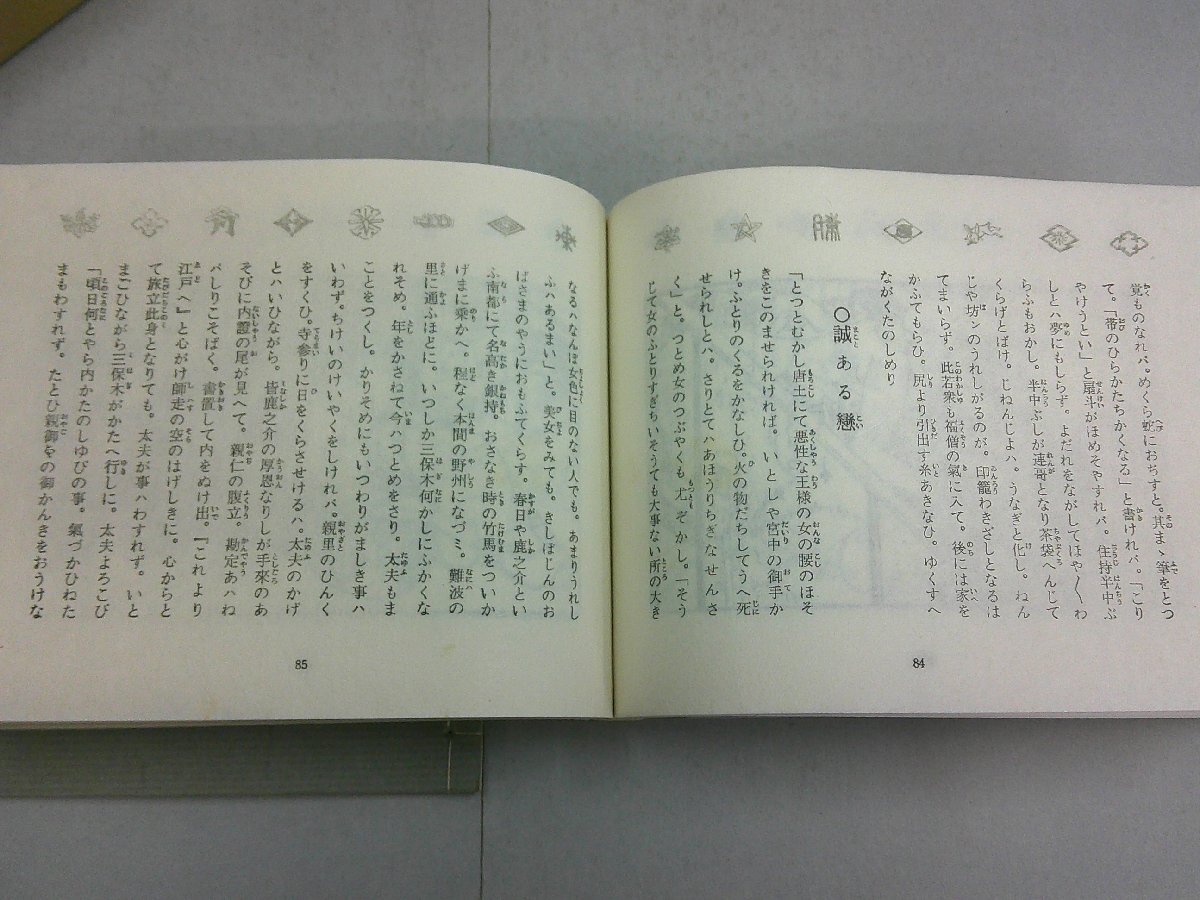 覚ものなれバ。めくら蛇におぢすと。其まゝ筆をとつ
て。「帯のひらかたちかくなる」と書けれバ。「こり
やけうとい」と扇斗がほめそやすれバ。住持半中ぶ
しとハ夢にもしらず。よだれをながしてほや〳〵わ
らふもおかし。半中ぶしが連哥となり茶袋へんじて
くらげとばけ。じねんじよハ。うなぎと化し。ねん
じや坊ンのうれしがるのが。印籠わきざしとなるは
てまいらず。此若衆も福僧の氣に入て。後には家を
かふてもらひ。尻より引出す糸あきなひ。ゆくすへ
ながくたのしめり
〇誠ある戀
「とつとむかし唐土にて悪性な王様の女の腰のほそ
きをこのませられければ。いとしや宮中の御手か
け。ふとりのくるをかなしひ。火の物だちしてうへ死
せられしとハ。さりとてハあほうりちぎなせんさ
く」と。つとめ女のつぶやくも尤ぞかし。「そう
じて女のふとりすぎちいそうても大事ない所の大き
84
なるハなんぼ女色に目のない人でも。あまりうれし
ふハあるまい」と。美女をみても。きしぼじんのお
ばさまのやうにおもふてくらす。春日や鹿之介とい
ふ南都にて名高き銀持。おさなき時の竹馬をついか
げまに乗かへ。程なく本間の野州になづミ。難波の
里に通ふほどに。いつしか三保木何かしにふかくな
れそめ。年をかさねて今ハつとめをさり。太夫もま
ことをつくし。かりそめにもいつわりがましき事ハ
いわず。ちけいのけいやくをしけれバ。親里のひんく
をすくひ。寺参りに日をくらさせけるハ。太夫のかげ
とハいひながら。皆鹿之介の厚恩なりしが手來のあ
そびに内證の尾が見へて。親仁の腹立。勘定あハね
バしりこそばく。書置して内をぬけ出。「これより
江戸へ」と心がけ師走の空のはげしきに。心からと
て旅立此身となりても。太夫が事ハわすれず。いと
まごひながら三保木がかたへ行しに。太夫よろこび
「頃日何とやら内かたのしゆびの事。氣づかひねた
まもわすれず。たとひ親御をの御かんきをおうけな
85